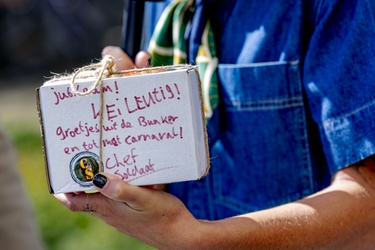 HEI LEUTIG!
Groetjes uit de Bunker
en tot met carnaval!
Chef
Soldaat